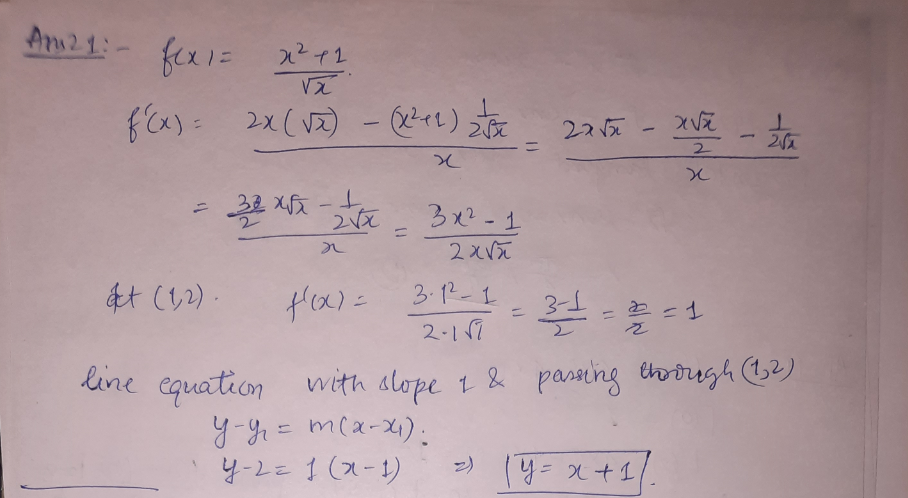 Ans21:- f(x) = (x²+1)/√x.
f'(x) = (2x(√x) - (x²+1) 1/(2√x))/x = (2x√x - x√x/2 - 1/(2√x))/x
= (3/2 x√x - 1/(2√x))/x = (3x² - 1)/(2x√x)
At (1,2). f'(x) = (3·1² - 1)/(2·1√1) = (3-1)/2 = 2/2 = 1
line equation with slope 1 & passing through (1,2)
y-y₁ = m(x-x₁).
y-2 = 1(x-1) ⇒ y = x+1.